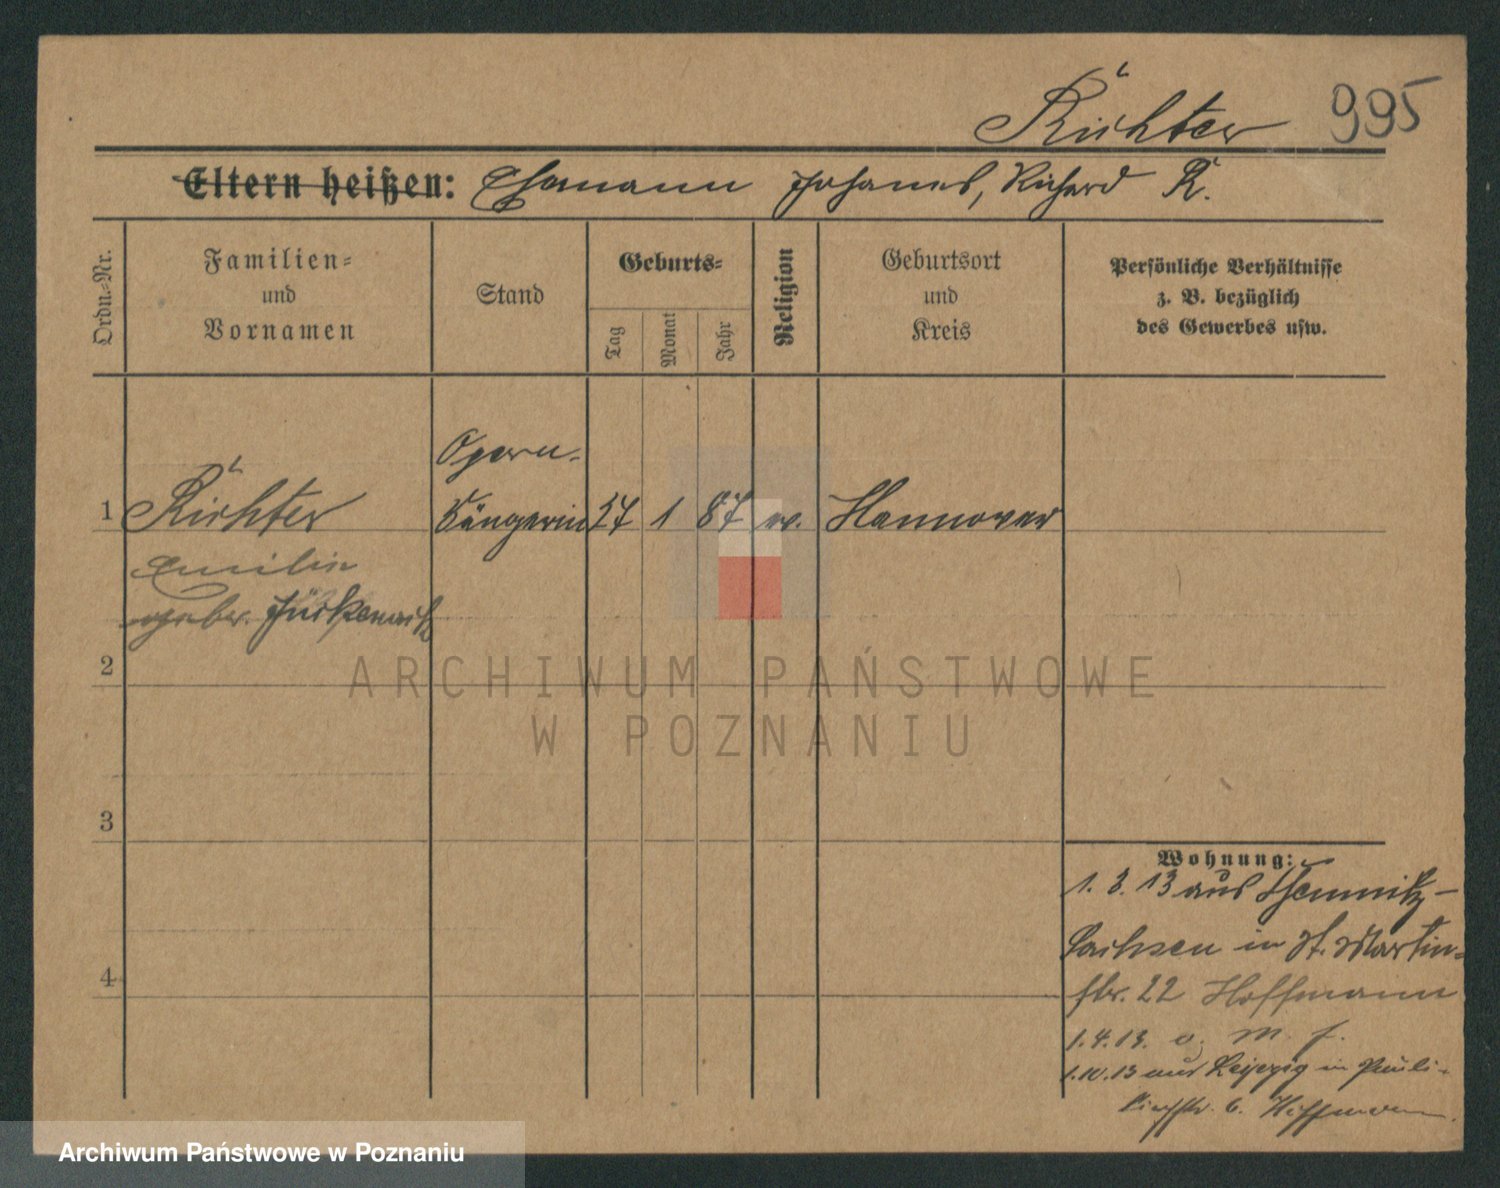 Richter 995
Eltern heißen: Ehemann Johannes, Richard R.
Ordn.-Nr.
Familien-
und
Vornamen
Stand
Geburts-
Tag
Monat
Jahr
Religion
Geburtsort
und
Kreis
Persönliche Verhältnisse
z. B. bezüglich
des Gewerbes usw.
Opern-
1 Richter Sängerin 27 1 87 ev. Hannover
Emilie
geb.
2
3
4
Wohnung:
1. 3. 13 aus Chemnitz-
Sachsen in St. Martin-
str. 22 Hoffmann
1.4.13. a. M. f.
1.10.13 aus Leipzig in Pauli-
kirchstr. 6. Hoffmann.
ARCHIWUM PAŃSTWOWE
W POZNANIU
Archiwum Państwowe w Poznaniu